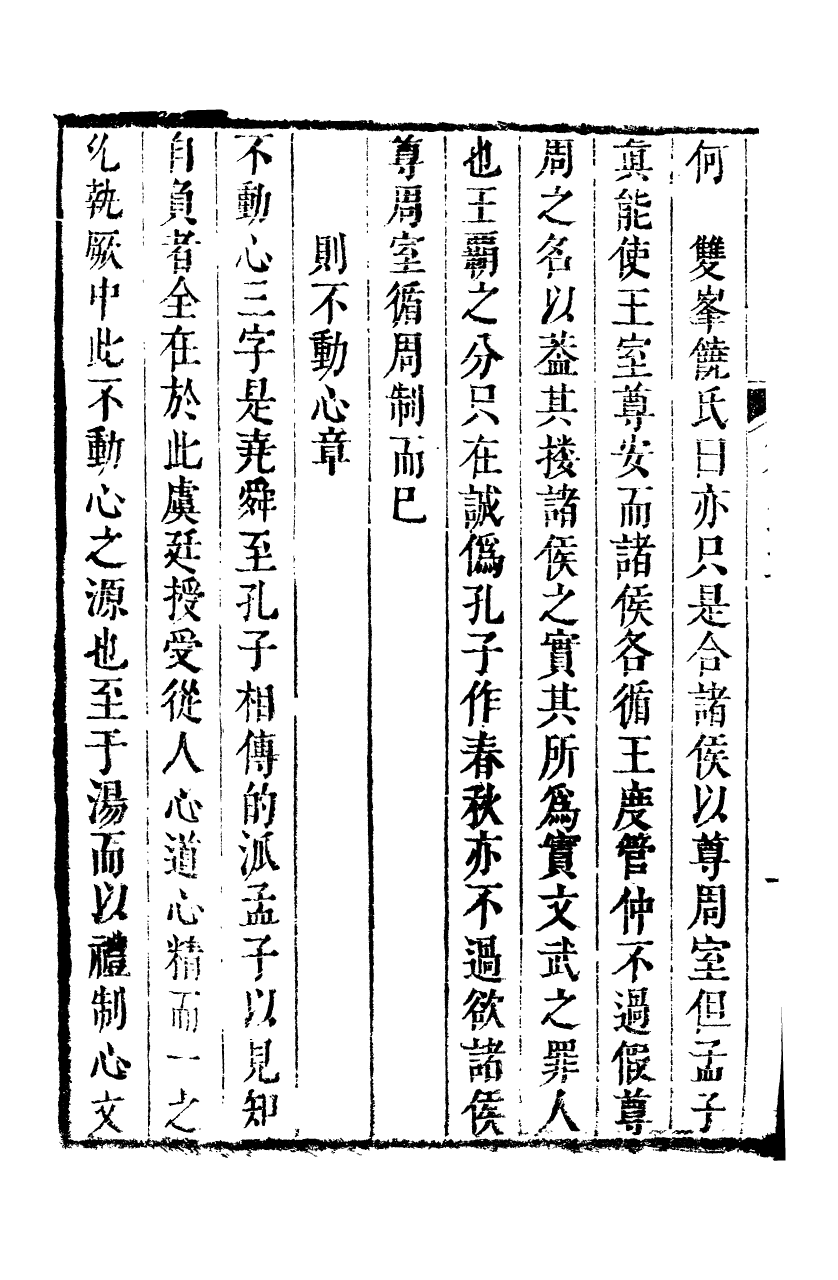 何　雙峯饒氏曰亦只是合諸侯以尊周室但孟子
眞能使王室尊安而諸侯各循王度管仲不過假尊
周之名以葢其摟諸侯之實其所爲實文武之罪人
也王覇之分只在誠僞孔子作春秋亦不過欲諸侯
尊周室循周制而已
則不動心章
不動心三字是堯舜至孔子相傳的派孟子以見知
自負者全在於此虞廷授受從人心道心精而一之
允執厥中此不動心之源也至于湯而以禮制心文